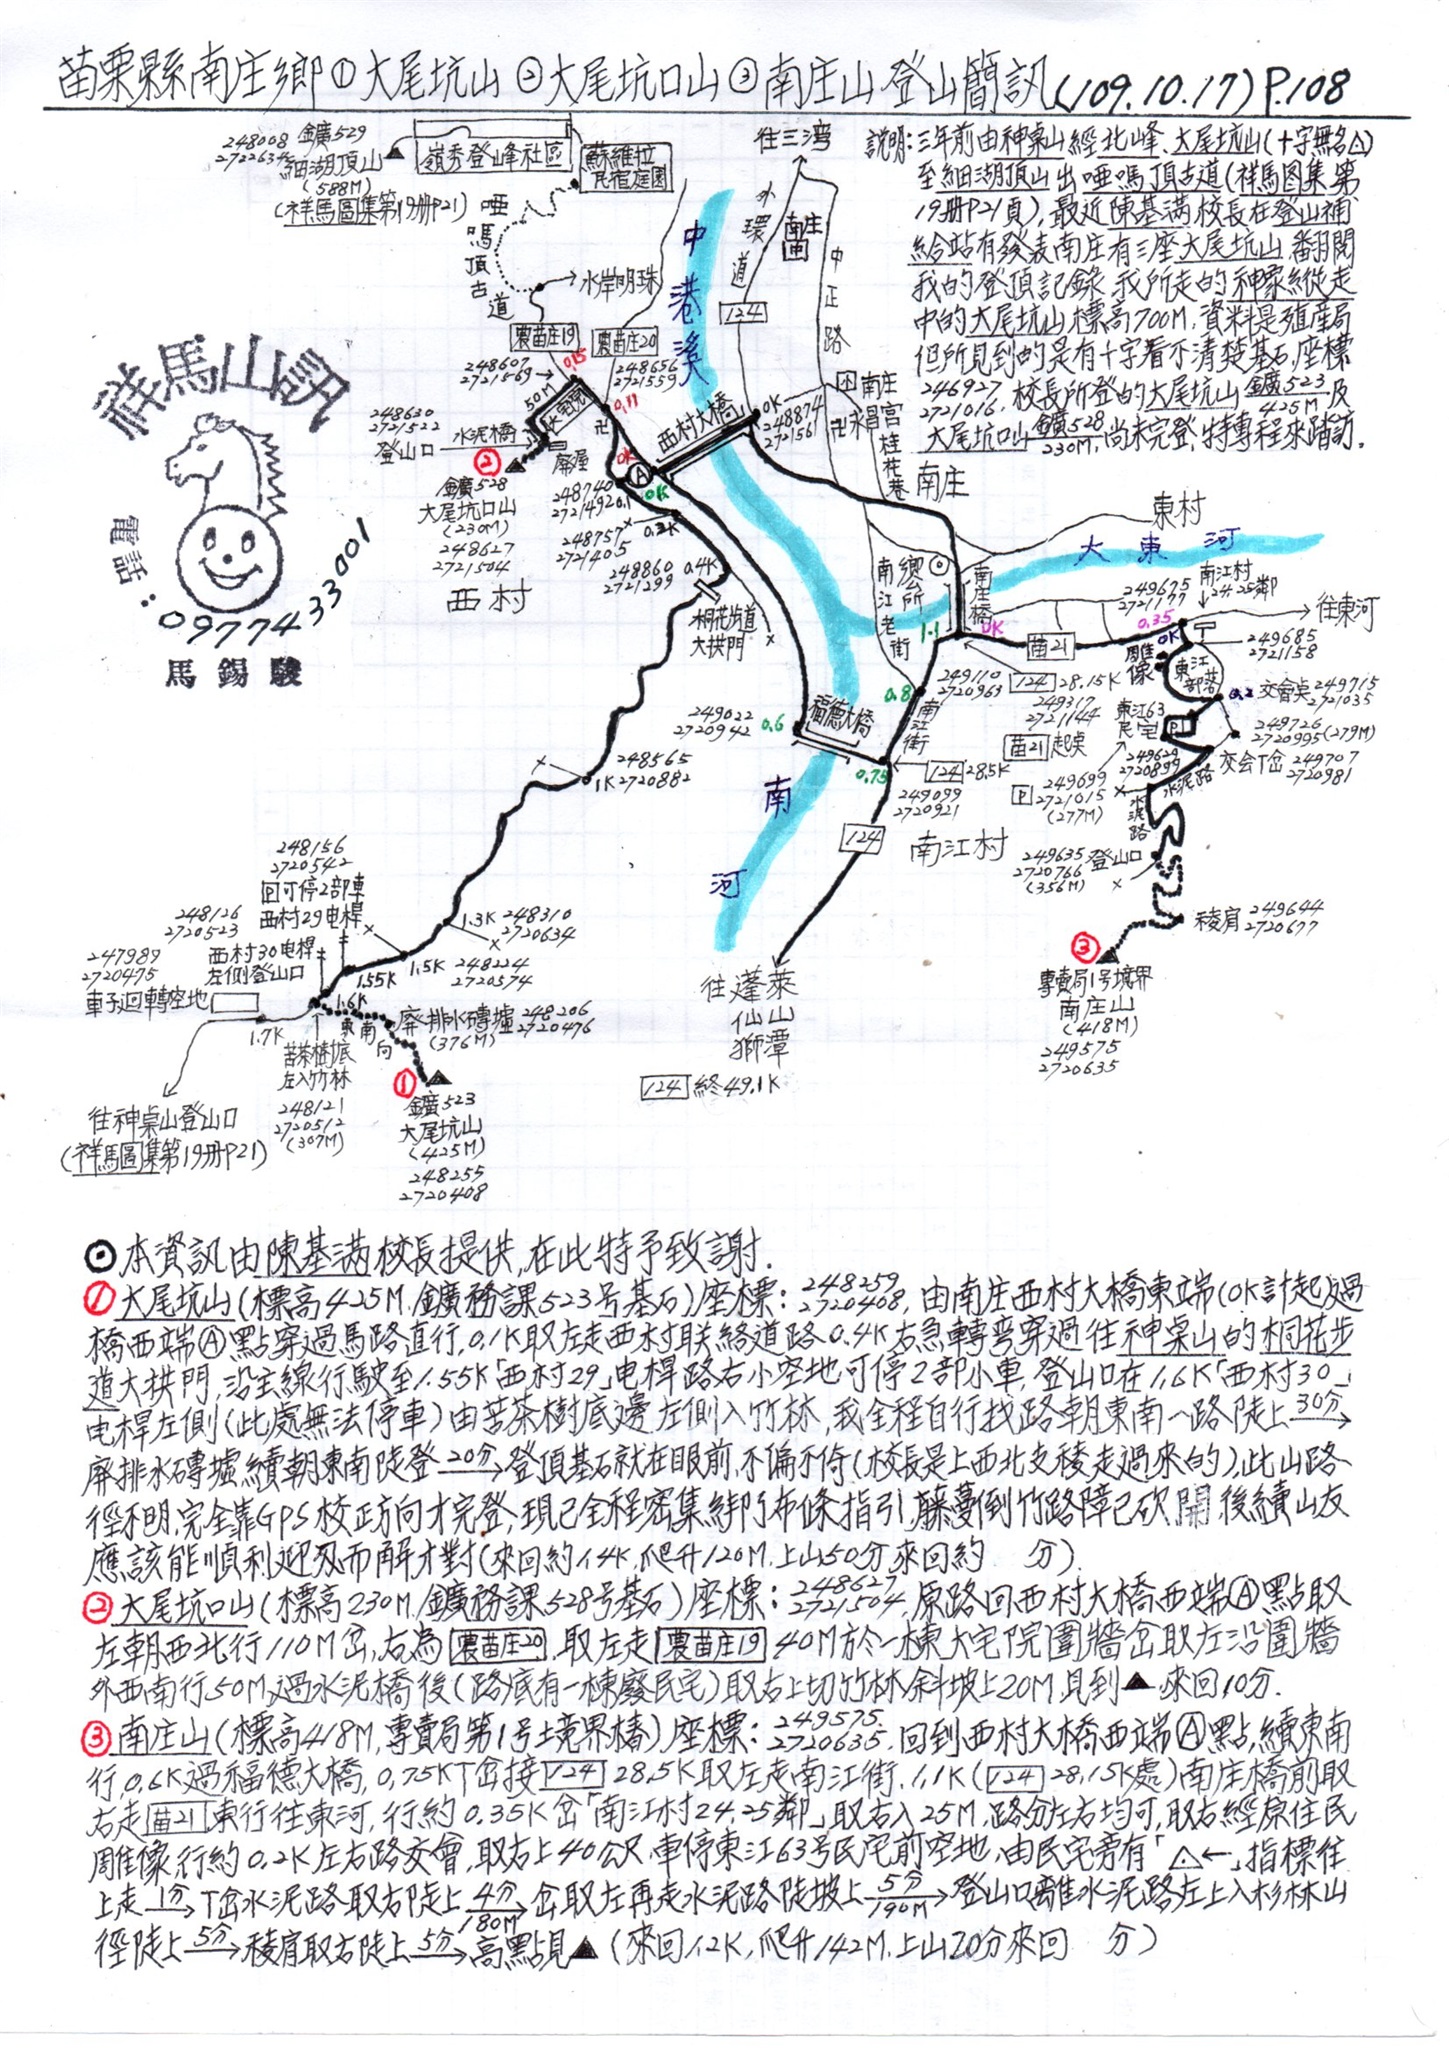 苗栗縣南庄鄉①大尾坑山②大尾坑口山③南庄山登山簡訊(109.10.17)P.108
說明:三年前由神桌山經北山峰、大尾坑山(十字無名△)
至細湖頂山出啞嗎頂古道(祥馬图集第
19册P21頁),最近陳基滿校長在登山補
給站有發表南庄有三座大尾坑山.翻閱
我的登頂記錄.我所走的神
中的大尾坑山標高700M,資料是殖產局
但所見到的是有十字看不清楚基石,座標
246927
2721016.校長所登的大尾坑山鑛523
425M及
大尾坑口山鑛528
230M,尚未完登,特專程來踏訪.
248008
2722634
金廣529
細湖頂山
(588M)
(祥馬區集第19册P21)
嶺秀登峰社區
蘇維拉
民宿庭園
啞嗎頂古道
水岸明珠
農苗庄19
農苗庄20
248607
2721569
0.15
50M
248656
2721559
0.11
248630
2721522
登山口
水泥橋
②
金廣528
大尾坑口山
(230M)
248627
2721504
西村
卍
0K
Ⓐ
0K
248740
2721492
0.1
248757
2721405
0.2K
248860
2721299
0.4K
桐花步道
大拱門
西村大橋
0K
248874
2721561
往三湾
外環道
124
南庄
国中
中正路
中港溪
南庄
卍永昌宮
桂花巷
南庄
東村
大東河
南江老街
南庄橋
1.1
0K
苗21
249675
2721177
0.35
0K
南江村
24.25鄰
往東河
249685
2721158
雕像
東江
部落
0.2
交會点249715
2721035
249726
2720995(279M)
交会T岔249707
2720981
東江63
民宅
P
249629
2720899
水泥路
水泥路
P
249699
2721015
(277M)
249635
2720766
(356M)
登山口
稜肩249644
2720677
③
專賣局1号境界
南庄山
(418M)
249575
2720635
124 28.15K
249317
2721144
苗21起点
249110
2720963
0.8
南江街
124 28.5K
249099
2720921
0.75
福德大橋
0.6
249022
2720942
南河
124
南江村
往蓬萊
仙山
獅潭
124終49.1K
248565
1K 2720882
1.3K 248310
2720634
1.5K 248224
2720574
248156
2720542
回可停2部車
西村29电桿
1.55K
248126
2720523
西村30电桿
左側登山口
247989
2720475
車子迴轉空地
1.7K
1.6K
東南向
廢排水磚墟248206
(376M)2720476
苦茶樹底
左入竹林
248121
2720512
(307M)
往神桌山登山口
(祥馬區集第19册P21)
①
金廣523
大尾坑山
(425M)
248255
2720408
祥馬山訊
電話:0977433001
馬錫駿
⊙本資訊由陳基滿校長提供,在此特予致謝.
①大尾坑山(標高425M.鑛務課523号基石)座標:248259
2720408,由南庄西村大橋東端(0K計起)過
橋西端Ⓐ點穿過馬路直行,0.1K取左走西村联絡道路0.4K右急轉彎穿過往神桌山的桐花步
道大拱門,沿主線行駛至1.55K「西村29」电桿路右小空地可停2部小車,登山口在1.6K「西村30」
电桿左側(此處無法停車)由苦茶樹底邊左側入竹林,我全程自行找路朝東南一路陡上30分→
屏排水磚墟續朝東南陡登20分→登頂基石就在眼前,不偏不倚(校長是上西北支稜走過來的),此山路
徑不明,完全靠GPS校正方向才完登,現已全程密集綁布條指引,藤蔓倒竹路障已砍開,後續山友
應該能順利迎刃而解才對(來回約1.4K,爬升120M,上山50分來回約　分).
②大尾坑口山(標高230M.鑛務課528号基石)座標:248627
2721504,原路回西村大橋西端Ⓐ點取
左朝西北行110M岔,右為農苗庄20,取左走農苗庄19 40M於一棟大宅院圍牆岔取左沿圍牆
外西南行50M過水泥橋後(路底有一棟廢民宅)取右上切竹林斜坡上20M,見到▲.來回10分.
③南庄山(標高418M,專賣局第1号境界樁)座標:249575
2720635.回到西村大橋西端Ⓐ點,續東南
行,0.6K過福德大橋,0.75KT岔接124 28.5K取左走南江街,1.1K(124 28.15K處)南庄橋前取
右走苗21東行往東河,行約0.35K岔「南江村24.25鄰」取右入25M,路分左右均可,取右經原住民
雕像,行約0.2K左右路交會,取右上40公尺,車停東江63号民宅前空地,由民宅旁有「△←」指標往
上走1分→T岔水泥路取右陡上4分
180M→岔取左再走水泥路陡坡上5分
190M→登山口離水泥路左上入杉林山
徑陡上5分→稜肩取右陡上5分→高點見▲(來回1.2K,爬升142M,上山20分來回　分)